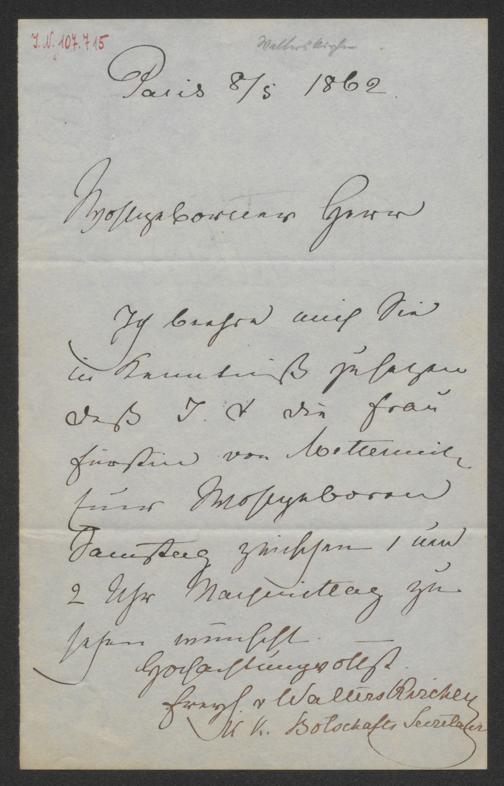 I.N. 107.715
Walterskirchen
Paris 8/5 1862.
Wohlgeborner Herr
Ich beehre mich Sie
in Kenntniß zu setzen
daß I. D. die Frau
Fürstin von Metternich
Euer Wohlgeboren
Samstag zwischen 1 und
2 Uhr Nachmittag zu
sehen wünscht.
Hochachtungsvollst
Freyh. v Walterskirchen
K. K. Botschafts Secretaire